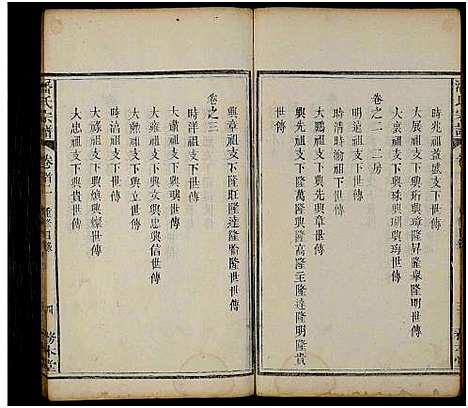 時兆祖蓋盛支下世傳
大展祖支下興珩興璋隆昇隆皋隆明世傳
大業祖支下興珠興璵世傳
明遠祖支下世傳
卷之二 二房
時清時渝祖支下世傳
大鵬祖支下興先興章世傳
興先祖支下隆萬隆興隆高隆生世傳
興章祖支下隆旺隆達隆隆世世傳
卷之三
時洋祖支下世傳
大肅祖支下興文興忠興信世傳
大雍祖支下興立世傳
時浩祖支下世傳
大祿祖支下興煥興燦世傳
大忠祖支下興貴世傳
潘氏宗譜
卷首二
重修目錄
四
務本堂